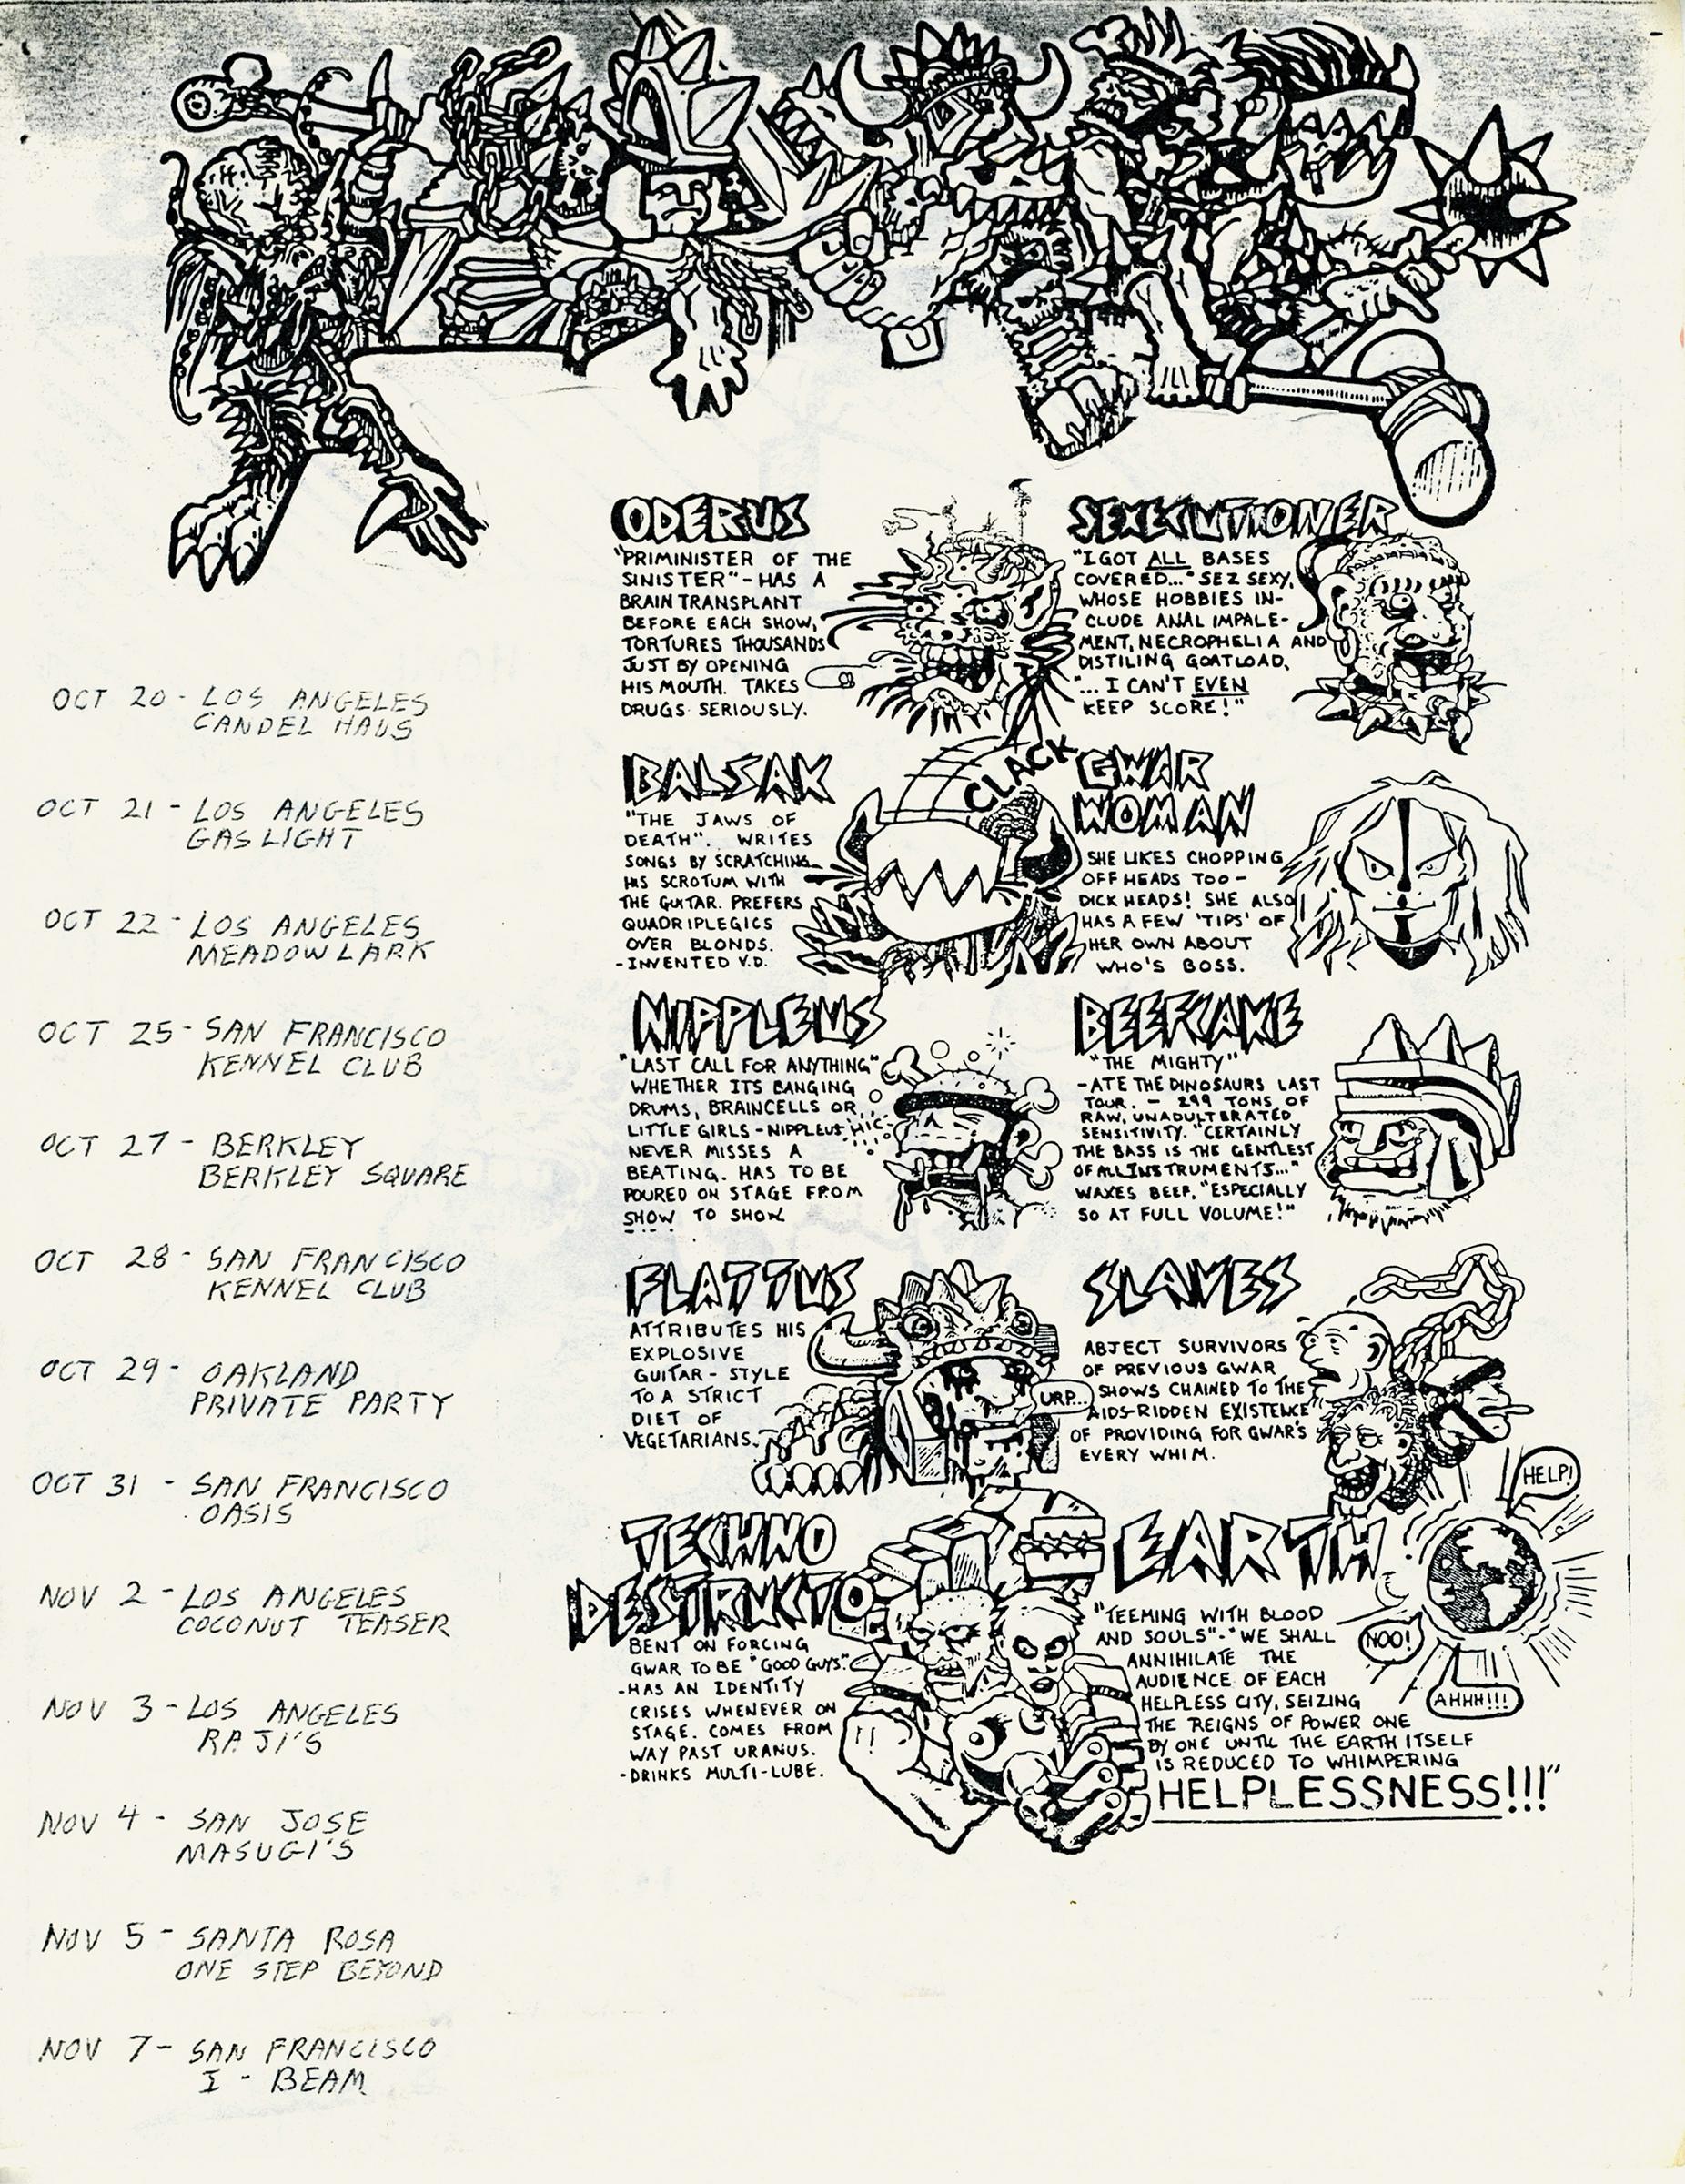 OCT 20 - LOS ANGELES
CANDEL HAUS
OCT 21 - LOS ANGELES
GASLIGHT
OCT 22 - LOS ANGELES
MEADOWLARK
OCT 25 - SAN FRANCISCO
KENNEL CLUB
OCT 27 - BERKLEY
BERKLEY SQUARE
OCT 28 - SAN FRANCISCO
KENNEL CLUB
OCT 29 - OAKLAND
PRIVATE PARTY
OCT 31 - SAN FRANCISCO
OASIS
NOV 2 - LOS ANGELES
COCONUT TEASER
NOV 3 - LOS ANGELES
RAJI'S
NOV 4 - SAN JOSE
MASUGI'S
NOV 5 - SANTA ROSA
ONE STEP BEYOND
NOV 7 - SAN FRANCISCO
I - BEAM
ODERUS
"PRIMINISTER OF THE
SINISTER" - HAS A
BRAIN TRANSPLANT
BEFORE EACH SHOW,
TORTURES THOUSANDS
JUST BY OPENING
HIS MOUTH. TAKES
DRUGS SERIOUSLY.
SEXECUTIONER
"I GOT ALL BASES
COVERED..." SEZ SEXY,
WHOSE HOBBIES IN-
CLUDE ANAL IMPALE-
MENT, NECROPHELIA AND
DISTILING GOATLOAD.
"... I CAN'T EVEN
KEEP SCORE!"
BALSAK
"THE JAWS OF
DEATH". WRITES
SONGS BY SCRATCHING
HIS SCROTUM WITH
THE GUITAR. PREFERS
QUADRIPLEGICS
OVER BLONDS.
-INVENTED V.D.
CLACK
GWAR
WOMAN
SHE LIKES CHOPPING
OFF HEADS TOO -
DICK HEADS! SHE ALSO
HAS A FEW 'TIPS' OF
HER OWN ABOUT
WHO'S BOSS.
NIPPLEUS
"LAST CALL FOR ANYTHING"
WHETHER ITS BANGING
DRUMS, BRAINCELLS OR
LITTLE GIRLS - NIPPLEUS
NEVER MISSES A
BEATING. HAS TO BE
POURED ON STAGE FROM
SHOW TO SHOW
HIC
BEEFCAKE
"THE MIGHTY"
-ATE THE DINOSAURS LAST
TOUR. - 299 TONS OF
RAW, UNADULTERATED
SENSITIVITY. "CERTAINLY
THE BASS IS THE GENTLEST
OF ALL INSTRUMENTS..."
WAXES BEEF, "ESPECIALLY
SO AT FULL VOLUME!"
FLATTUS
ATTRIBUTES HIS
EXPLOSIVE
GUITAR - STYLE
TO A STRICT
DIET OF
VEGETARIANS.
URP..
SLAVES
ABJECT SURVIVORS
OF PREVIOUS GWAR
SHOWS CHAINED TO THE
AIDS-RIDDEN EXISTENCE
OF PROVIDING FOR GWAR'S
EVERY WHIM.
TECHNO
DESTRUCTO
BENT ON FORCING
GWAR TO BE "GOOD GUYS".
-HAS AN IDENTITY
CRISES WHENEVER ON
STAGE. COMES FROM
WAY PAST URANUS.
-DRINKS MULTI-LUBE.
EARTH
"TEEMING WITH BLOOD
AND SOULS" - "WE SHALL
ANNIHILATE THE
AUDIENCE OF EACH
HELPLESS CITY, SEIZING
THE REIGNS OF POWER ONE
BY ONE UNTIL THE EARTH ITSELF
IS REDUCED TO WHIMPERING
HELPLESSNESS!!!"
HELP!
NOO!
AHHH!!!